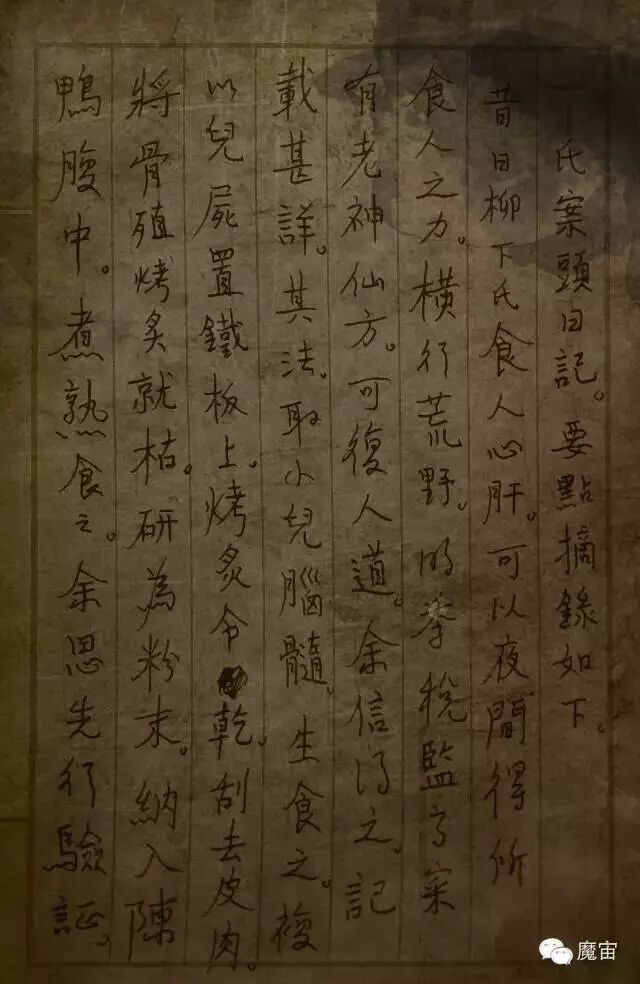 氏案頭日記。要點摘錄如下。
昔日柳下氏食人心肝。可以夜間得所
食人之力。橫行荒野。明季稅監高寀
有老神仙方。可復人道。余信得之。記
載甚詳。其法。取小兒腦髓。生食之。複
以兒屍置鐵板上。烤炙令乾。刮去皮肉。
將骨殖烤炙就枯。研為粉末。納入陳
鴨腹中。煮熟食之。余思先行驗証。
魔宙